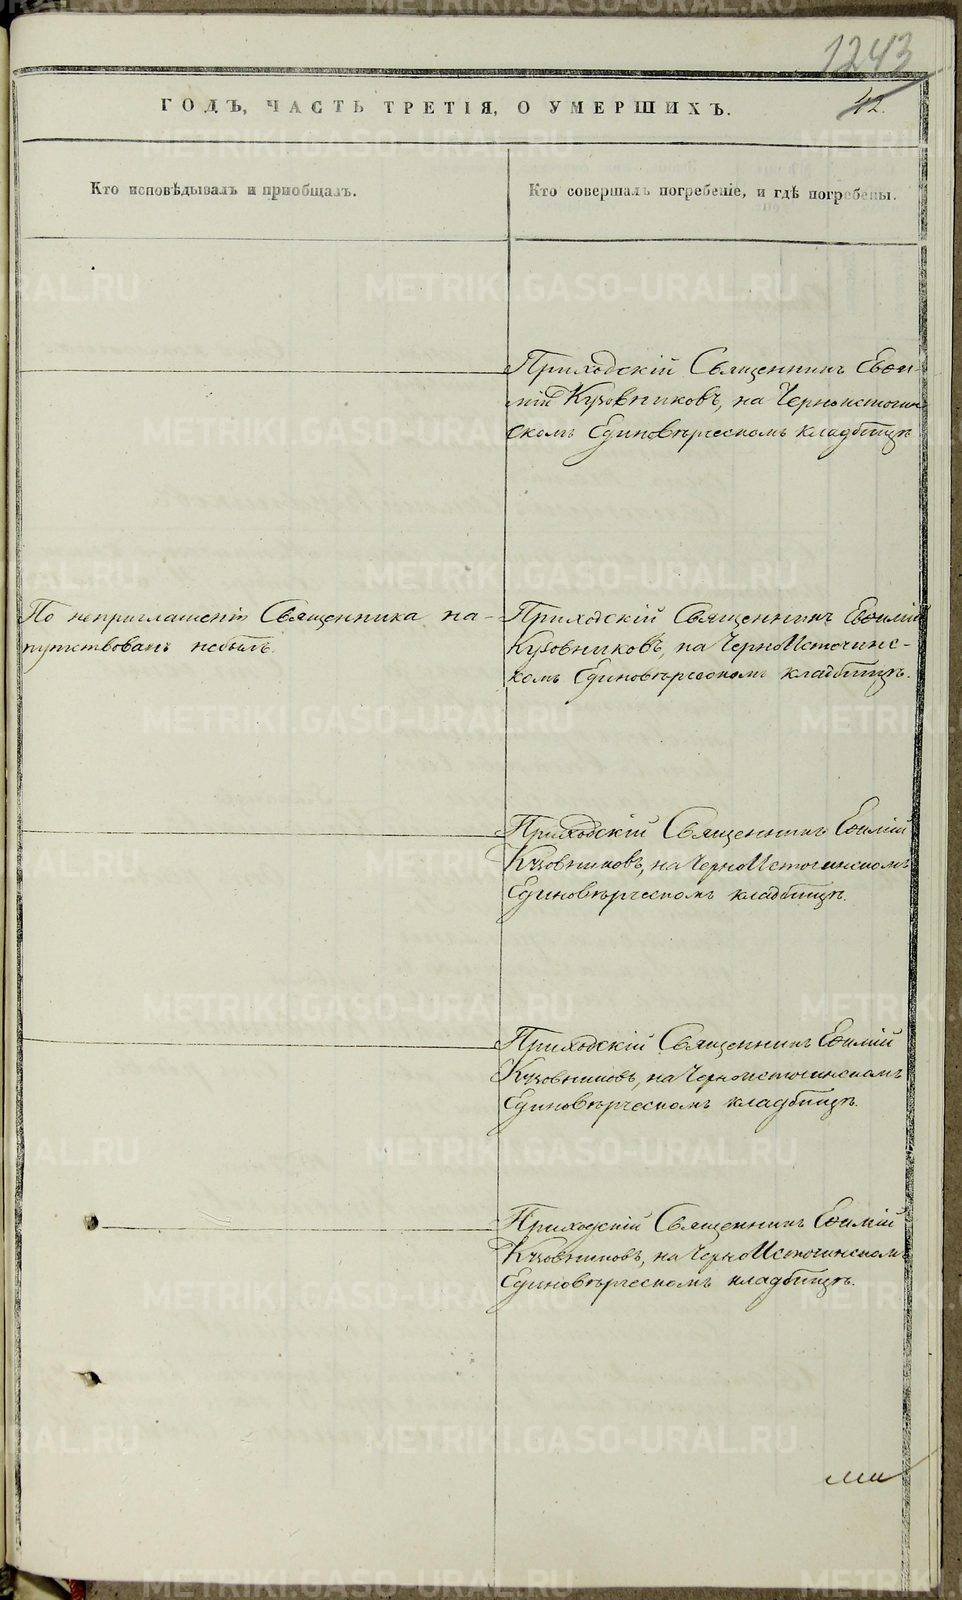 1243
42.
ГОДЪ, ЧАСТЬ ТРЕТІЯ, О УМЕРШИХЪ.
Кто исповѣдывалъ и пріобщалъ.
Кто совершалъ погребеніе, и гдѣ погребены.
Приходскій Священникъ Евѳи-
мій Кузовниковъ, на Черноисточин
скомъ Единовѣрческомъ кладбищѣ
По неприглашенію Священника на-
путствованъ небылъ.
Приходскій Священникъ Евѳимій
Кузовниковъ, на ЧерноИсточинс-
комъ Единовѣрческомъ кладбищѣ.
Приходскій Священникъ Еѳимій
Кузовниковъ, на ЧерноИсточинскомъ
Единовѣрческомъ кладбищѣ.
Приходскій Священникъ Еѳимій
Кузовниковъ, на Черноисточинскомъ
Единовѣрческомъ кладбищѣ.
Приходскій Священникъ Еѳимій
Кузовниковъ, на ЧерноИсточинскомъ
Единовѣрческомъ кладбищѣ.
METRIKI.GASO-URAL.RU